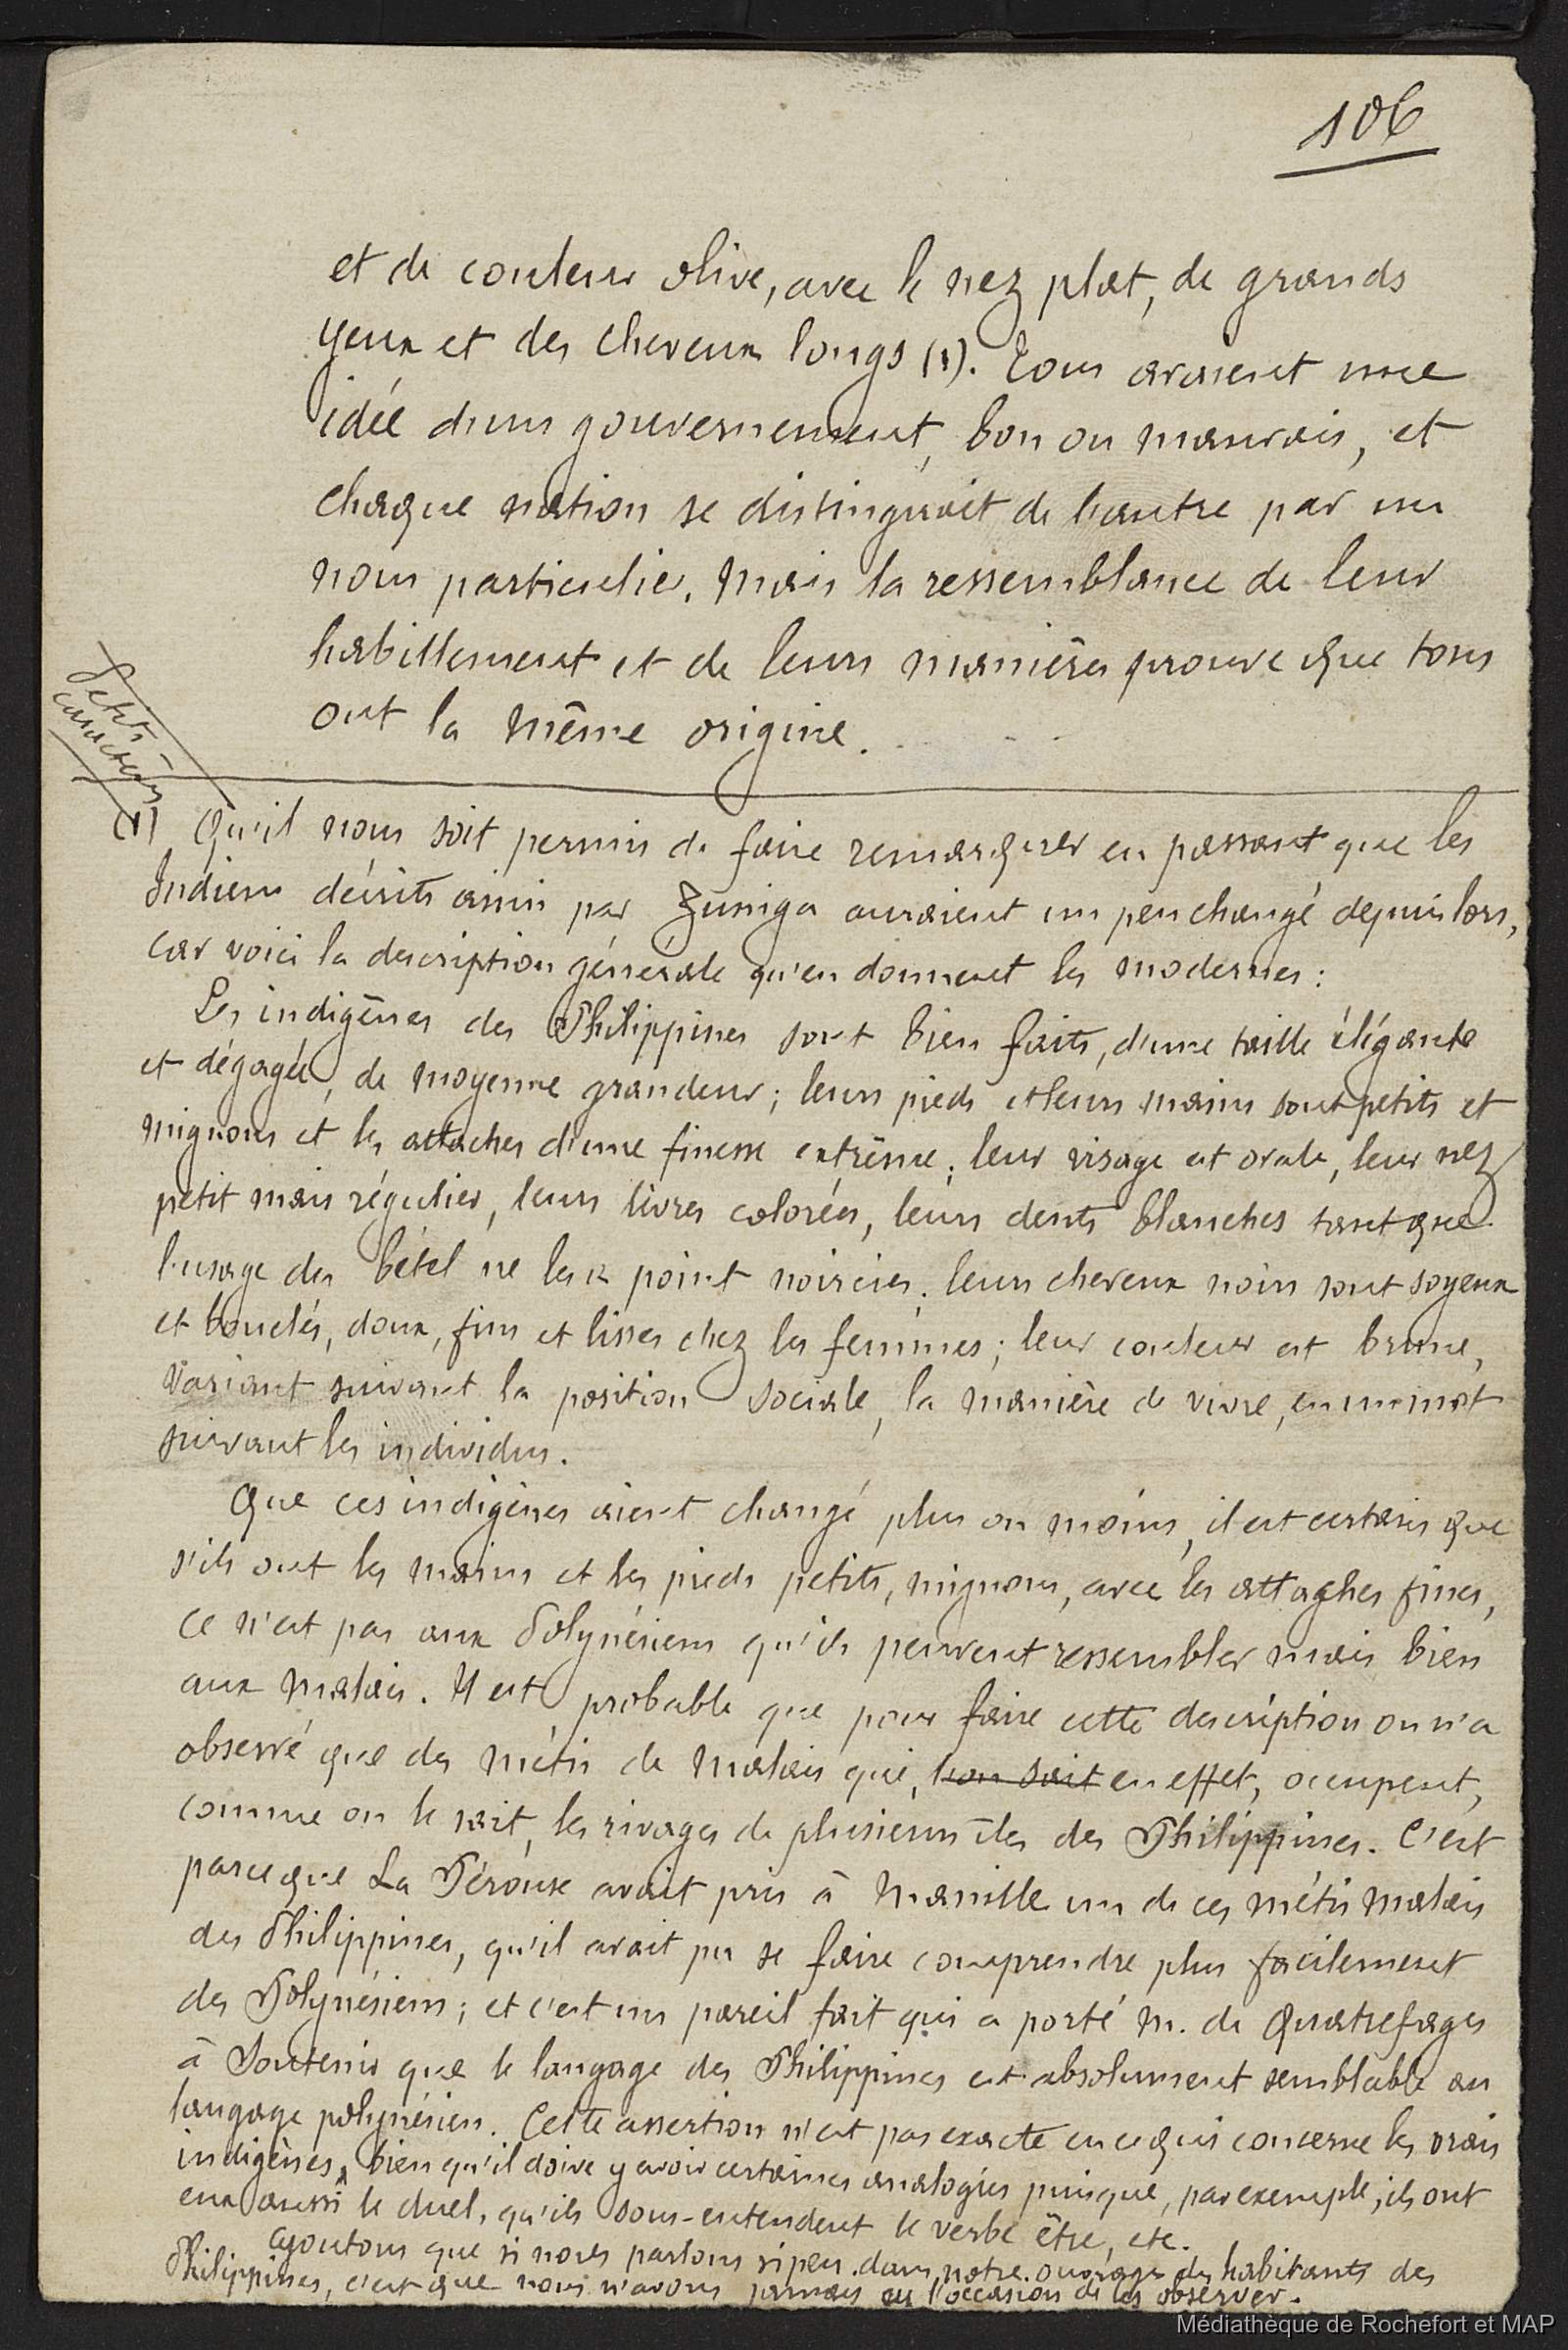 106
et de couleur olive, avec le nez plat, de grands
yeux et des cheveux longs (1). Tous avaient une
idée d'un gouvernement, bon ou mauvais, et
chaque nation se distinguait de l'autre par un
nom particulier. Mais la ressemblance de leur
habillement et de leurs manières prouve que tous
ont la même origine.
Petits
caractères
(1) Qu'il nous soit permis de faire remarquer en passant que les
Indiens décrits ainsi par Zuniga auraient un peu changé depuis lors,
car voici la description générale qu'en donnent les modernes :
Les indigènes des Philippines sont bien faits, d'une taille élégante
et dégagée, de moyenne grandeur ; leurs pieds et leurs mains sont petits et
mignons et les attaches d'une finesse extrême ; leur visage est ovale, leur nez
petit mais régulier, leurs lèvres colorées, leurs dents blanches tant que
l'usage du bétel ne les a point noircies ; leurs cheveux noirs sont soyeux
et bouclés, doux, fins et lisses chez les femmes ; leur couleur est brune,
variant suivant la position sociale, la manière de vivre, en un mot
suivant les individus.
Que ces indigènes aient changé plus ou moins, il est certain que
s'ils ont les mains et les pieds petits, mignons, avec les attaches fines,
ce n'est pas aux Polynésiens qu'ils peuvent ressembler mais bien
aux Malais. Il est probable que pour faire cette description on n'a
observé que des métis de Malais qui, l'on sait en effet, occupent,
comme on le sait, les rivages de plusieurs îles des Philippines. C'est
parce que La Pérouse avait pris à Manille un de ces métis malais
des Philippines, qu'il avait pu se faire comprendre plus facilement
des Polynésiens ; et c'est un pareil fait qui a porté M. de Quatrefages
à soutenir que le langage des Philippines est absolument semblable au
langage polynésien. Cette assertion n'est pas exacte en ce qui concerne les vrais
indigènes, bien qu'il doive y avoir certaines analogies puisque, par exemple, ils ont
eux aussi le duel, qu'ils sous-entendent le verbe être, etc.
Ajoutons que si nous parlons si peu dans notre ouvrage des habitants des
Philippines, c'est que nous n'avons jamais eu l'occasion de les observer.
Médiathèque de Rochefort et MAP